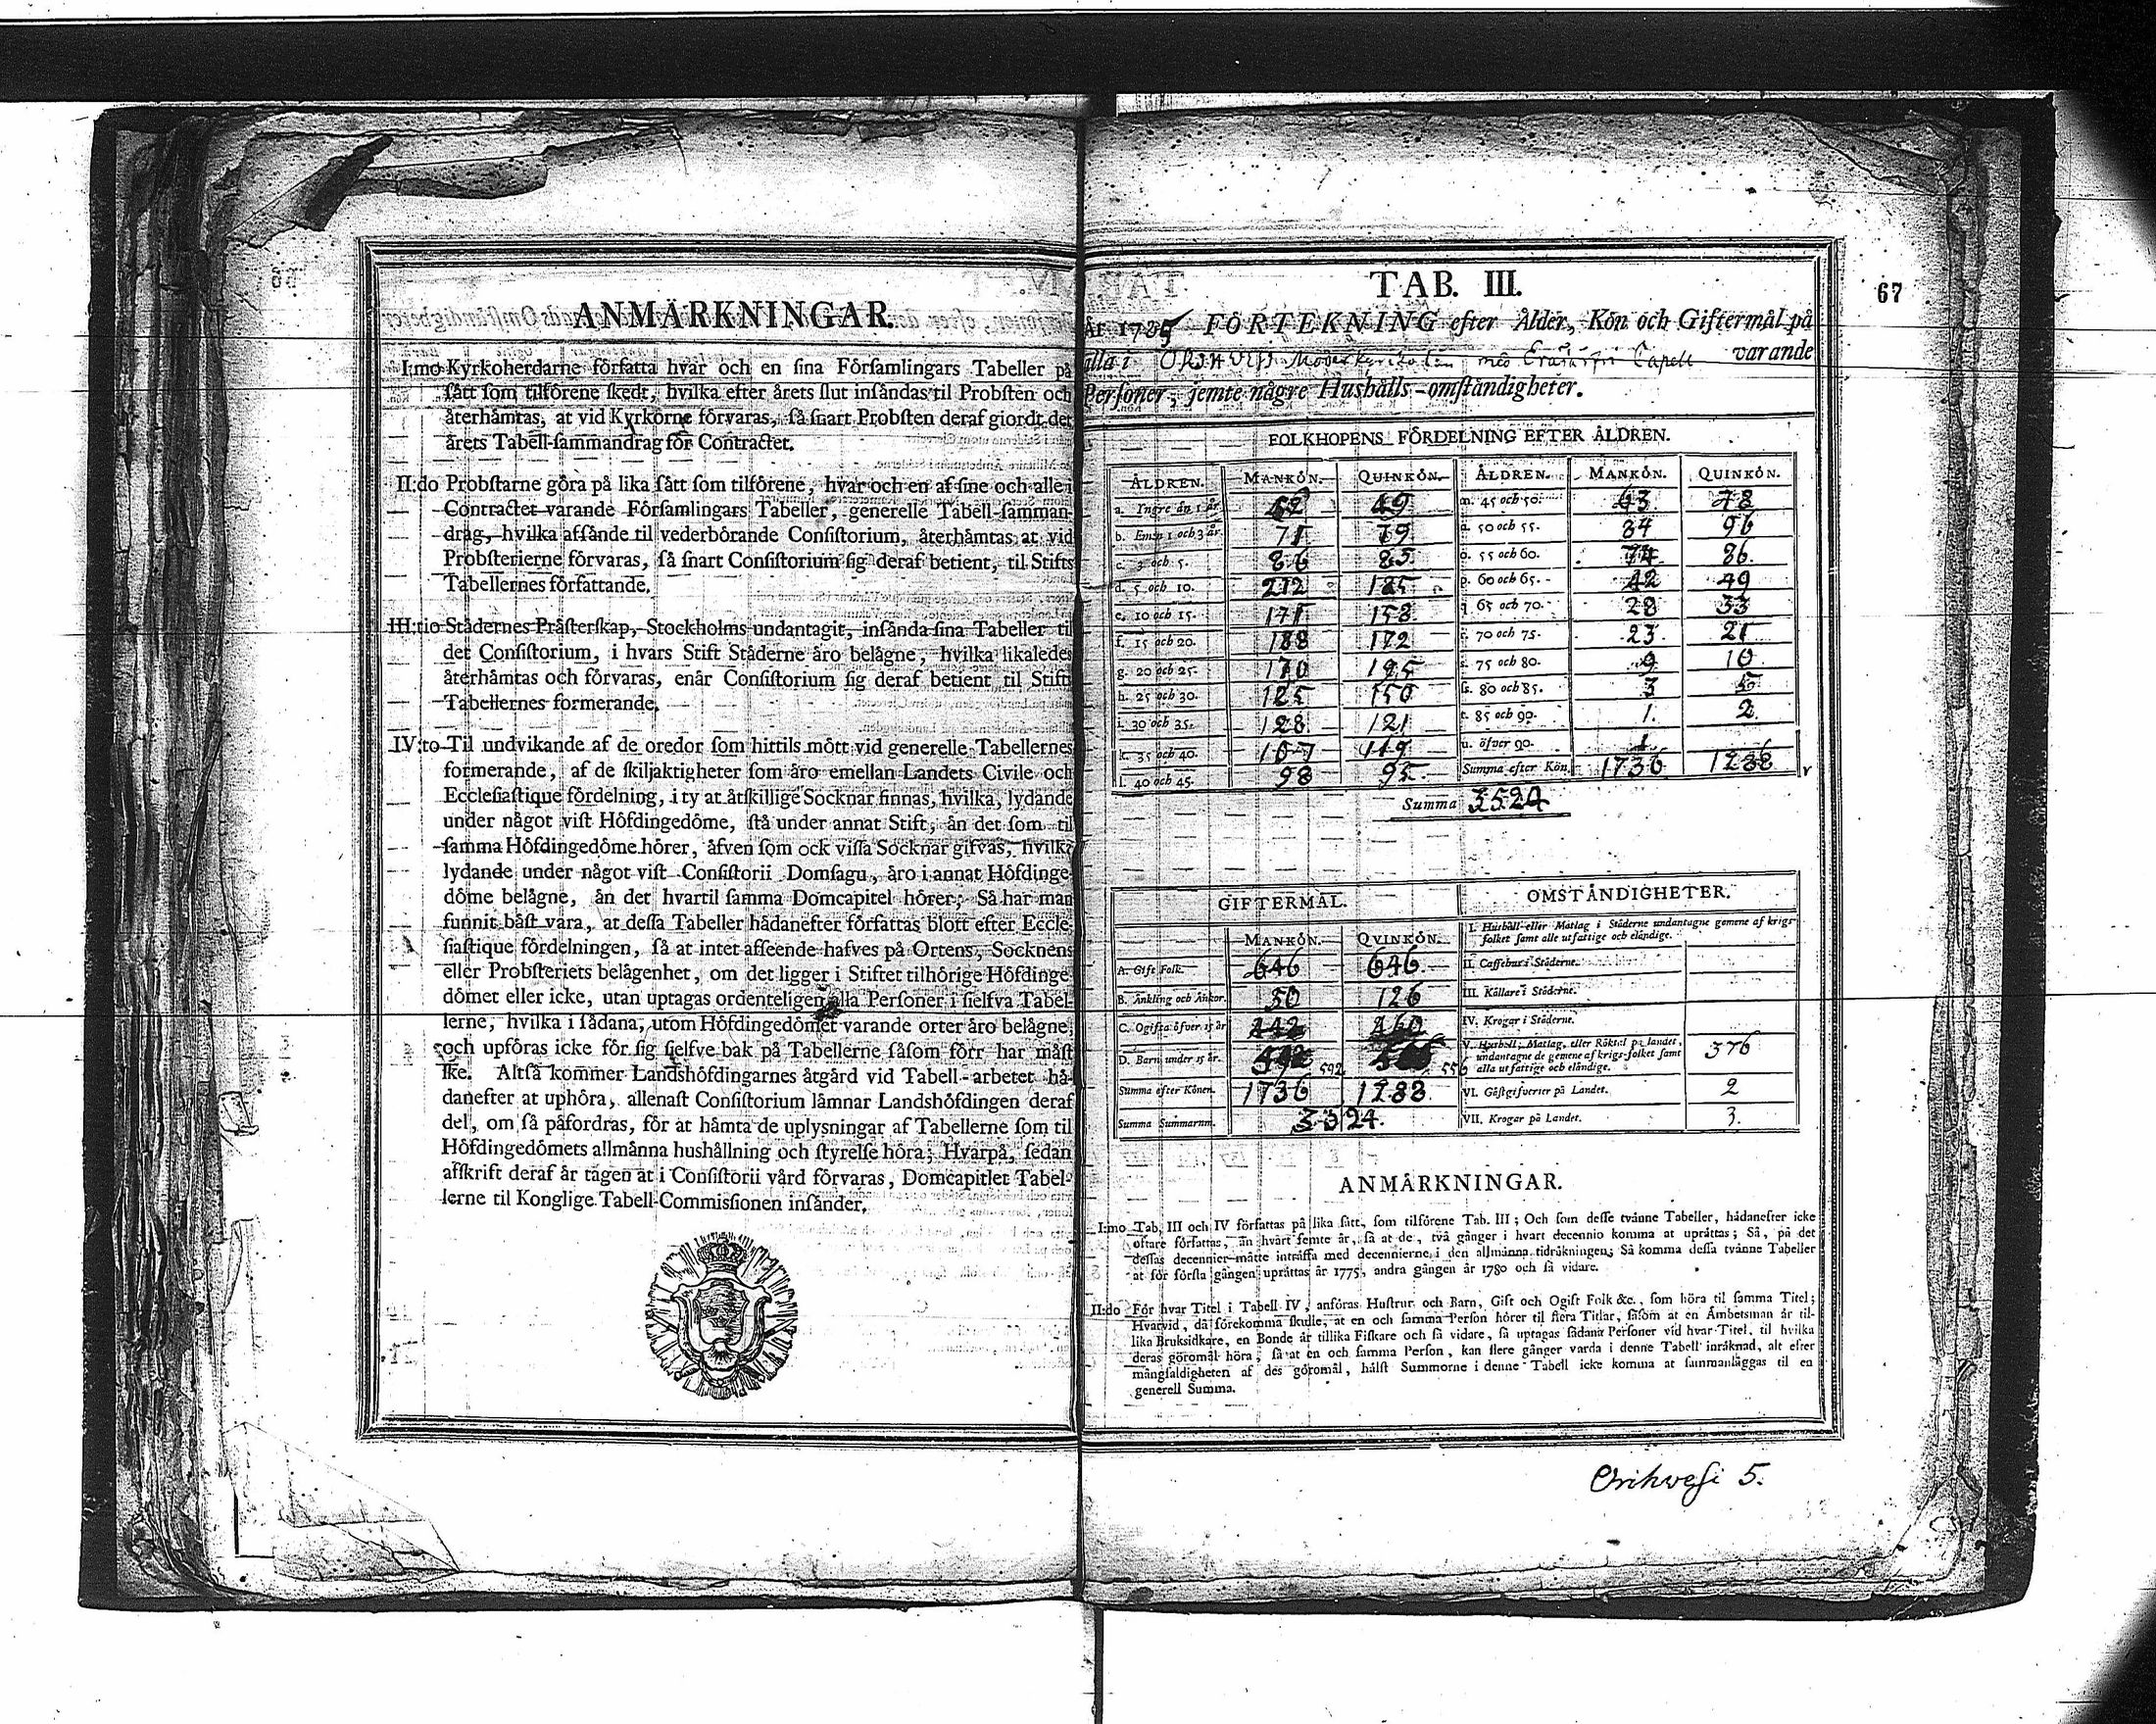 ANMÄRKNINGAR.
I:mo Kyrkoherdarne författa hvar och en sina Församlingars Tabeller på
sått som tilförene skedt, hvilka efter årets slut insåndas til Probsten och
återhåmtas, at vid Kyrkorne förvaras, så snart Probsten deraf giordt det
årets Tabell-sammandrag för Contractet.
II:do Probstarne göra på lika sått som tilförene, hvar och en af sine och alle i
Contractet varande Församlingars Tabeller, generelle Tabell-samman-
drag, hvilka afsånde til vederbörande Consistorium, återhåmtas at vid
Probsterierne förvaras, så snart Consistorium sig deraf betient, til Stifts
Tabellernes författande.
III:tio Städernes Pråsterskap, Stockholms undantagit, insånda sina Tabeller til
det Consistorium, i hvars Stift Ståderne åro belågne, hvilka likaledes
återhåmtas och förvaras, enår Consistorium sig deraf betient til Stifts
Tabellernes formerande.
IV:to Til undvikande af de oredor som hittils mött vid generelle Tabellernes
formerande, af de skiljaktigheter som åro emellan Landets Civile och
Ecclesiastique fördelning, i ty at åtskillige Socknar finnas, hvilka, lydande
under något vist Höfdingedöme, stå under annat Stift, ån det som til
samma Höfdingedöme hörer, åfven som ock vissa Socknar gifvas, hvilka
lydande under något vist Consistorii Domsagu, åro i annat Höfdinge-
döme belågne, ån det hvartil samma Domcapitel hörer; Så har man
funnit båst vara, at dessa Tabeller hådanefter författas blott efter Eccle-
siastique fördelningen, så at intet afseende hafves på Ortens, Socknens
eller Probsteriets belågenhet, om det ligger i Stiftet tilhörige Höfdinge-
dömet eller icke, utan uptagas ordenteligen alla Personer i sielfva Tabel-
lerne, hvilka i sådana, utom Höfdingedömet varande orter åro belågne,
och upföras icke för sig sielfve bak på Tabellerne såsom förr har måst
ske. Altså kommer Landshöfdingarnes åtgård vid Tabell-arbetet hå-
danefter at uphöra, allenast Consistorium låmnar Landshöfdingen deraf
del, om så påfordras, för at håmta de uplysningar af Tabellerne som til
Höfdingedömets allmånna hushållning och styrelse höra; Hvarpå, sedan
afskrift deraf år tagen at i Consistorii vård förvaras, Domcapitlet Tabel-
lerne til Konglige Tabell-Commissionen insånder.
67
TAB. III.
År 1785 FÖRTEKNING efter Ålder, Kön och Giftermål på
alla i med Capell varande
Personer, jemte några Hushålls-omståndigheter.
FOLKHOPENS FÖRDELNING EFTER ÅLDREN.
ÅLDREN. MANKÖN. QUINKÖN. ÅLDREN. MANKÖN. QUINKÖN.
a. Ingre ån 1 år 62 49 m. 45 och 50. 63 78
b. Emn 1 och 3 år 71 79 n. 50 och 55. 84 96
c. 3 och 5. 86 85 o. 55 och 60. 74 86
d. 5 och 10. 202 185 p. 60 och 65. 42 49
e. 10 och 15. 171 158 q. 65 och 70. 28 33
f. 15 och 20. 188 172 r. 70 och 75. 23 21
g. 20 och 25. 170 195 s. 75 och 80. 9 10
h. 25 och 30. 125 150 ss. 80 och 85. 3 5
i. 30 och 35. 128 121 t. 85 och 90. 1. 2
k. 35 och 40. 107 119 u. öfver 90. 1
l. 40 och 45. 98 95 Summa efter Kön. 1736 1788
Summa 3524
GIFTERMÅL. OMSTÅNDIGHETER.
MANKÖN. QVINKÖN.
I. Hushåll eller Matlag i Ståderne undantagne gemene af krigs-
folket samt alle utfattige och elåndige.
A. Gift Folk. 646 646 II. Caffehus i Ståderne.
B. Änkling och Änkor. 50 126 III. Källare i Ståderne.
C. Ogifta öfver 15 år IV. Krogar i Ståderne.
D. Barn under 15 år. 592 556
V. Hushåll, Matlag, eller Röktal på landet,
undantagne de gemene af krigs-folket samt
alla utfattige och elåndige. 376
Summa efter Könen. 1736 1788 VI. Gästgifverier på Landet. 2
Summa Summarum. 3524. VII. Krogar på Landet. 3.
ANMÄRKNINGAR.
I:mo Tab. III och IV författas på lika sått, som tilförene Tab. III; Och som desse tvånne Tabeller, hådanefter icke
oftare författas, ån hvart femte år, så at de, två gånger i hvart decennio komma at upråttas; Så, på det
dessas decennier måtte intråffa med decennierne i den allmånna tidråkningen; Så komma dessa tvånne Tabeller
at för första gången upråttas år 1775, andra gången år 1780 och så vidare.
II:do För hvar Titel i Tabell IV, anföras Hustrur och Barn, Gift och Ogift Folk &c., som höra til samma Titel;
Hvarvid, då förekomma skulle, at en och samma Person hörer til flera Titlar, såsom at en Åmbetsman år til-
lika Bruksidkare, en Bonde år tillika Fiskare och så vidare, så uptagas sådana Personer vid hvar Titel, til hvilka
deras göromål höra, så at en och samma Person, kan flere gånger varda i denne Tabell inråknad, alt efter
mångfaldigheten af des göromål, hålst Summorne i denne Tabell icke komma at sammanläggas til en
generell Summa.
Orihvesi 5.